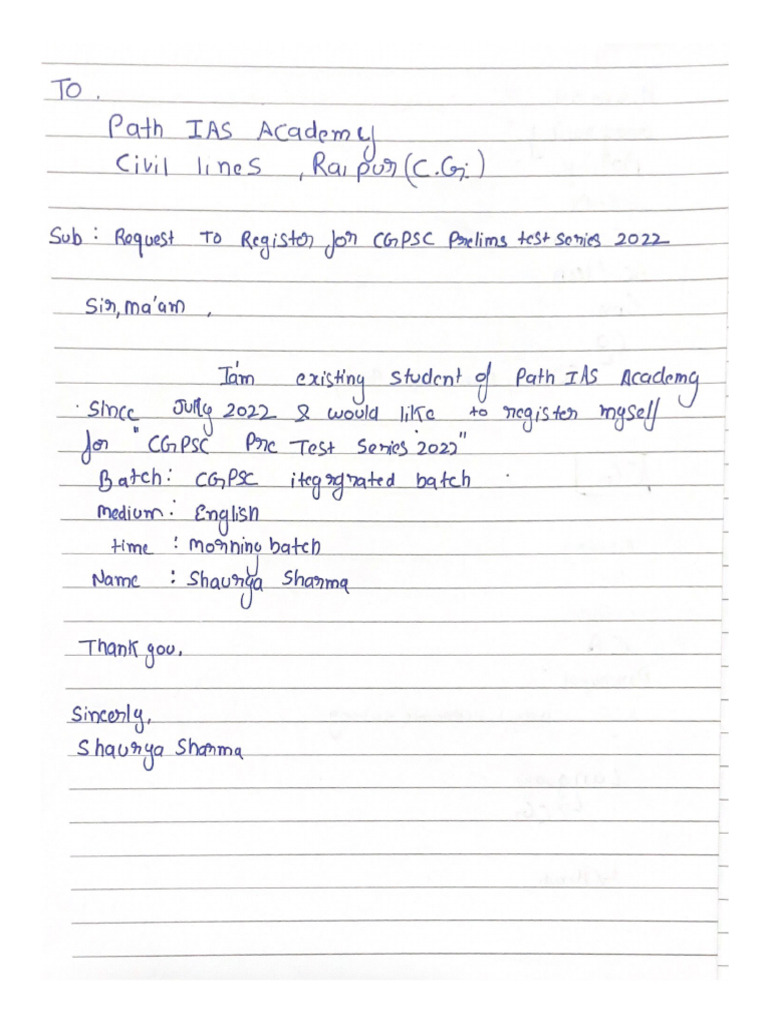 TO.
Path IAS Academy
Civil lines, Raipur (C.G.)
Sub: Request To Register for CGPSC Prelims test series 2022
Sir, ma'am,
I'am existing student of Path IAS Academy
since July 2022 & would like to register myself
for "CGPSC Pre Test Series 2022"
Batch: CGPSC itegrgrated batch
Medium: English
time: morning batch
Name: Shaurya Sharma
Thank you.
Sincerly,
Shaurya Sharma